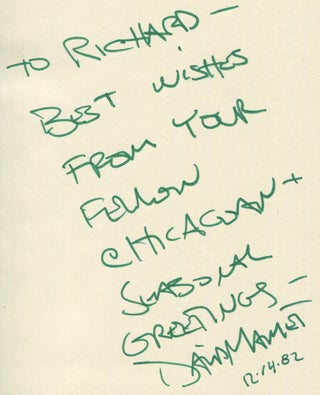 TO RICHARD —
BEST WISHES
FROM YOUR
FELLOW
CHICAGOAN +
SEASONAL
GREETINGS —
DAVID MAMET
12.14.82